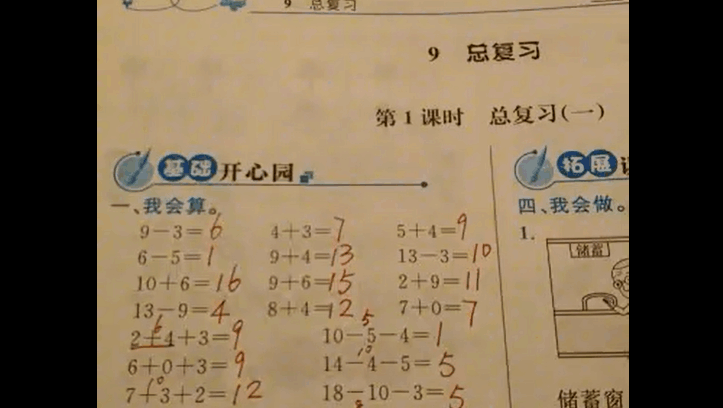 9 总复习
9 总复习
第1课时 总复习(一)
基础开心园
一、我会算。
9-3=6 4+3=7 5+4=9
6-5=1 9+4=13 13-3=10
10+6=16 9+6=15 2+9=11
13-9=4 8+4=12 7+0=7
6 5
2+4+3=9 10-5-4=1
10
6+0+3=9 14-4-5=5
10
7+3+2=12 18-10-3=5
8
拓展
四、我会做。
1.
储蓄
储蓄窗